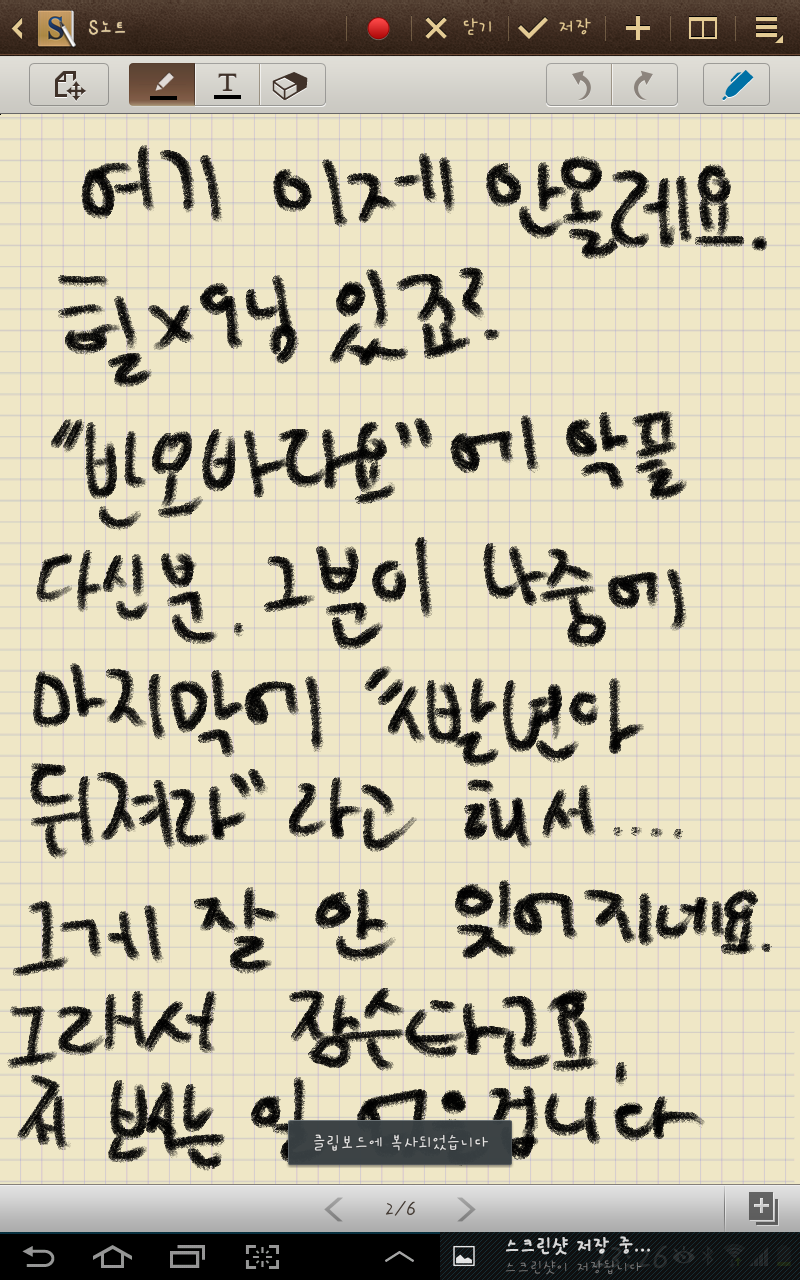 S노트
닫기
저장
T
여기 이제 안올레요.
힐x9님 있죠?
"빈오바라요"에 악플
다신분. 그분이 나중에
마지막에 "시발년아
뒤져라" 라고 해서....
그게 잘 안 잊어지네요.
그래서 장수한다고요,
저 보는 일 겁니다
클립보드에 복사되었습니다
2/6
스크린샷 저장 중...
스크린샷이 저장됩니다